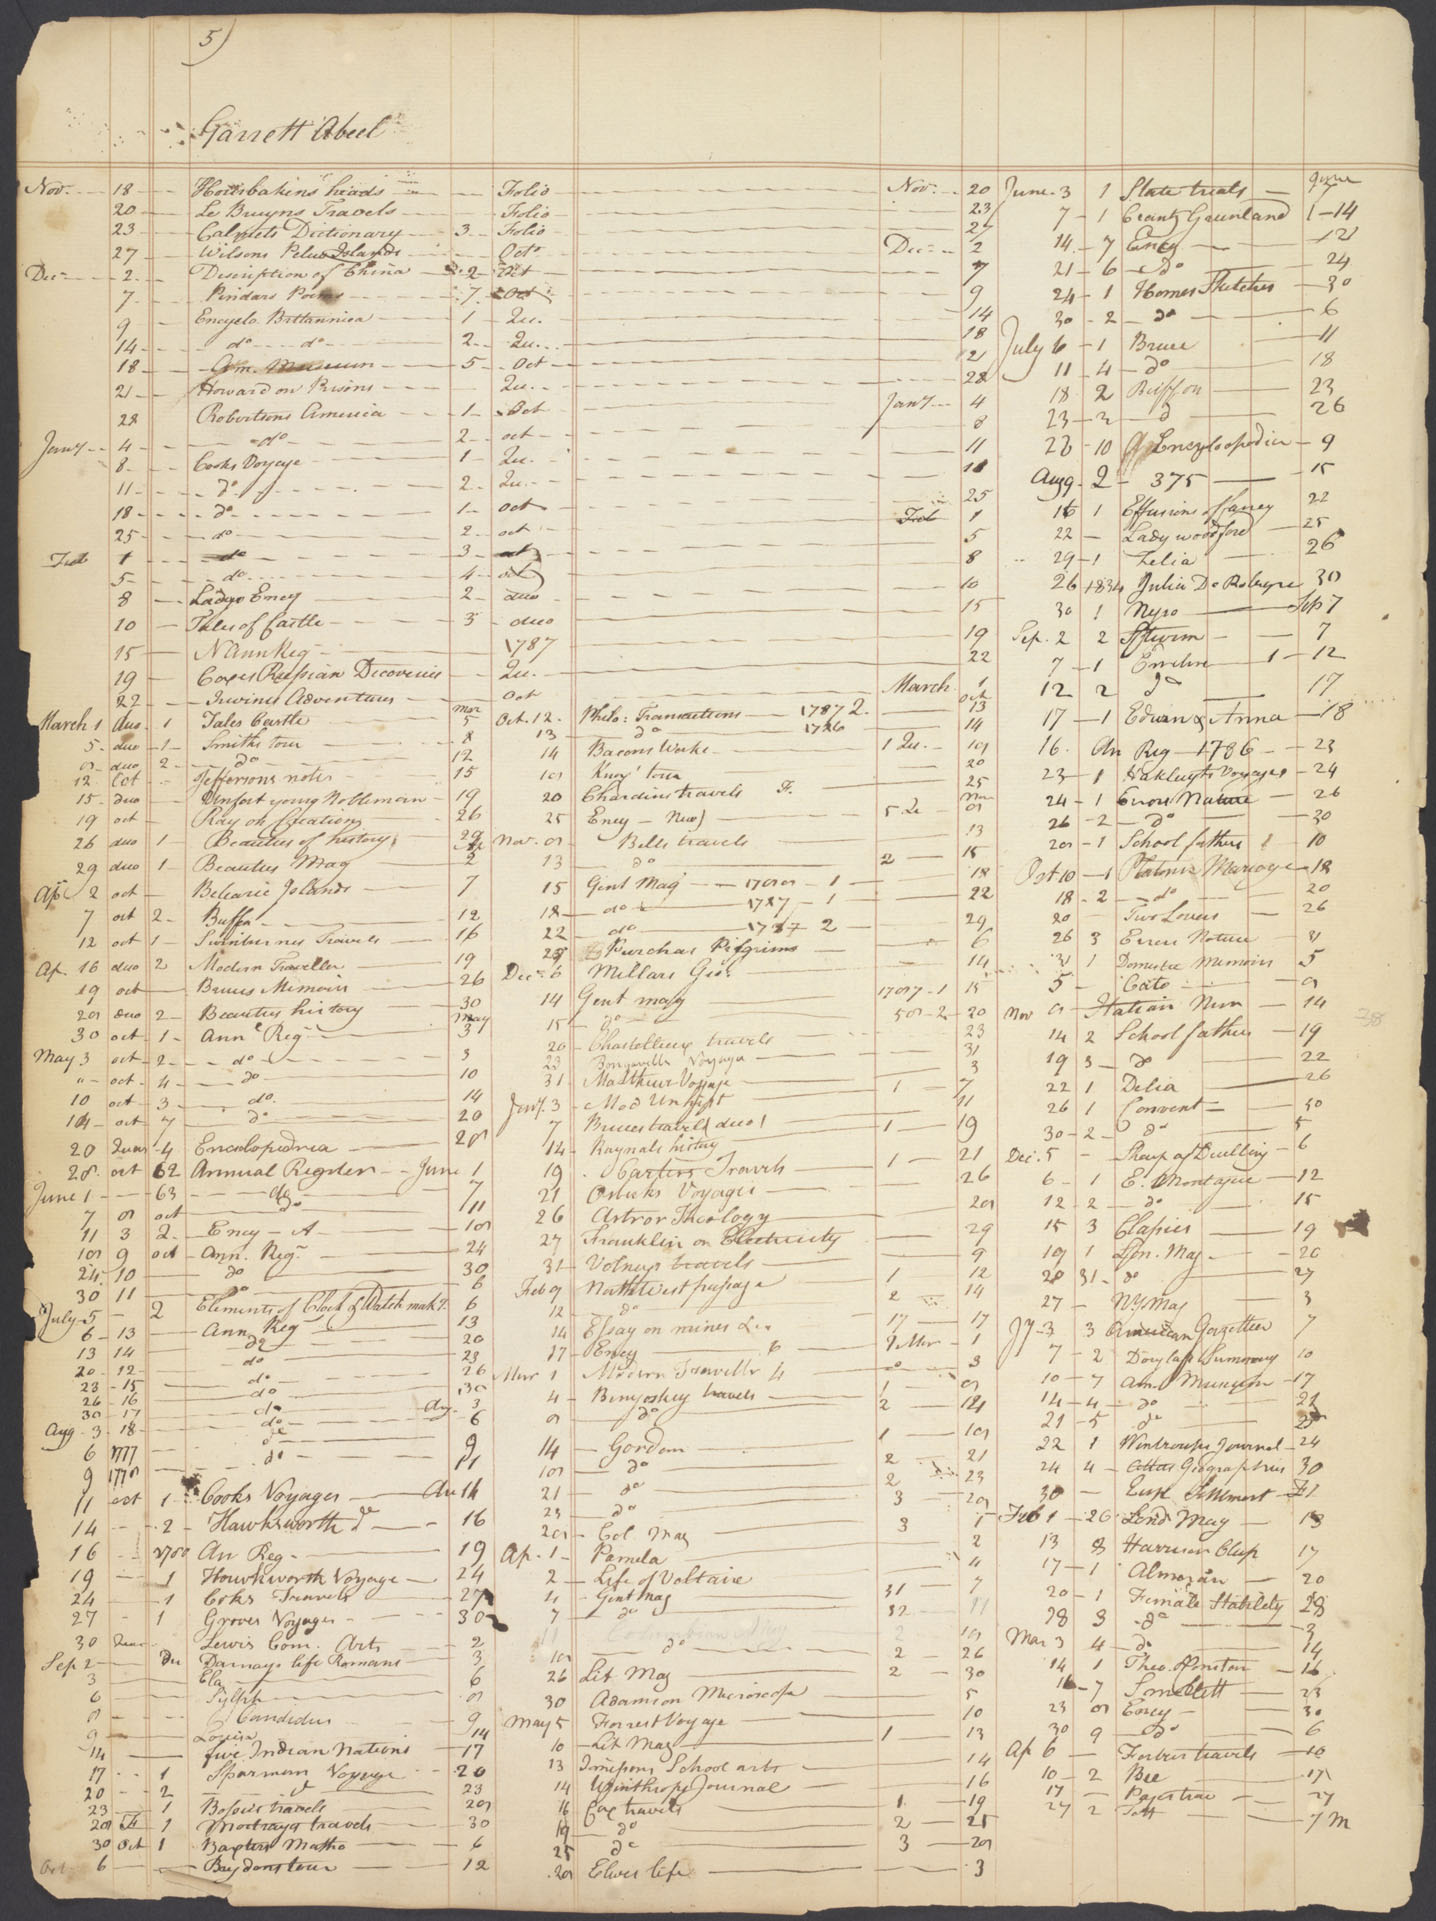 5)
Garrett Abeel
Nov. 18 Houbakins heads Folio Nov. 20
20 Le Bruyns Travels Folio 23
23 Calmets Dictionary 3 Folio 27
27 Wilsons Pelew Islands Octo Dec 2
Dec 2 Discription of China 2 Oct 7
7 Pindars Poems 7 Oct 9
9 Encyclo Brittannica 1 Qu. 14
14 do do 2 Qu. 18
18 Am. Museum 5 Oct 21
21 Howard on Prisons Qu. 28
28 Robertsons America 1 Oct Jany 4
Jany 4 do 2 oct 8
8 Cooks Voyage 1 Qu. 11
11 do 2 Qu. 18
18 do 1 oct 25
25 do 2 oct Feb 1
Feb 1 do 3 oct 5
5 do 4 oct 8
8 Ladys Ency 2 duo 10
10 Tales of Castle 3 duo 15
15 N Ann Reg 1787 19
19 Coxes Russian Discoveries Qu. 22
22 Irwines Adventures Oct March 1
March 1 duo 1 Tales Castle Mar 5
5 duo 1 Smiths tour 8
8 duo 2 do 12
12 Oct Jeffersons notes 15
15 duo young Nobleman 19
19 oct Ray on Creation 26
26 duo 1 Beauties of history 29
29 duo 1 Beauties Mag 2
Ap 2 oct Belearic Islands 7
7 oct 2 Buffn 12
12 oct 1 Swinburnes Travels 16
Ap. 16 duo 2 Modern Traveller 19
19 oct Bruces Memoirs 26
28 duo 2 Beauties history 30
30 oct 1 Ann Reg May 3
May 3 oct 2 do 3
" oct 4 do 10
10 oct 3 do 14
14 oct 7 do 20
20 Quar 4 Encyclopedia 28
28 oct 62 Annual Register June 1
June 1 63 do 7
7 8 oct do 11
11 3 2 Ency A 18
18 9 oct Ann. Reg. 24
24 10 do 30
30 11 do 6
July 5 2 Elements of Clock & Watch mak'g 6
6 13 Ann Reg 13
13 14 do 20
20 12 do 23
23 15 do 26
26 16 do 30
30 17 do Aug. 3
Aug 3 18 do 6
6 1777 do 9
9 1778 do 11
11 oct 1 Cooks Voyages Au 14
14 2 Hawksworth do 16
16 1780 An Reg 19
19 1 Howksworth Voyage 24
24 1 Coks Travels 27
27 1 Groves Voyages 30
30 Quar Lewis Com. Arts 2
Sep 2 Du Darnays life Romans 3
3 Ela 6
6 Sylph 8
8 Candidus 9
9 Louisa 14
14 five Indian Nations 17
17 1 Sparman Voyage 20
20 2 do 23
23 1 Bossies travels 28
28 1 Moctrays travels 30
30 Oct 1 Baxters Matho 6
Oct 6 Brydons tour 12
Oct. 12 Philo: Transactions 1787 2 Oct 13
13 do 1786 14
14 Bacons Works 1 Qu. 18
18 tour 20
20 Chardins travels F. 25
25 Ency New Nov 8
Nov. 8 Bells travels 13
13 do 2 15
15 Gent Mag 1788 1 18
18 do 1787 1 22
22 do 1787 2 29
29 Purchas Pilgrims 6
Dec. 6 Millars Geo. 14
14 Gent mag 1787 1 15
15 do 58 2 20
20 Chastelleux travels 23
23 Voyage 31
31 Matthews Voyage 3
Jany. 3 Mod Un hist 1 7
7 Bruces travels duo 1 11
14 Raynals history 1 19
19 Carters Travels 1 21
21 Osbecks Voyages 26
26 Astror Theology 28
27 Francklin on Electricity 29
31 Volneys travels 9
Feb 9 North West passage 1 12
12 do 2 14
14 Essay on mines 17 17
17 Ency 9 Mar 1
Mar 1 Modern Traveller 4 3
4 Benyoskey travels 1 8
8 do 2 14
14 Gordon 1 18
18 do 2 21
21 do 2 23
23 do 3 28
28 Col Mag 3 1
Ap. 1 Pamela 2
2 Life of Voltaire 4
4 Gent Mag 31 7
7 do 32 11
11 Columbian Mag 2 18
18 do 2 26
26 Lit Mag 2 30
30 Adamson Microscope 5
May 5 Forrest Voyage 10
10 Lit Mag 1 13
13 Jamesons School arts 14
14 Winthrops Journal 16
16 Cox travels 1 19
19 do 2 25
25 do 3 28
28 Elwes life 3
June 3 1 State trials June 7
7 1 Crantz Greenland 1 14
14 7 Ency 21
21 6 do 24
24 1 Homes Sketches 30
30 2 do 6
July 6 1 Bruce 11
11 4 do 18
18 2 Buffon 23
23 2 do 26
28 10 Encyclopedia 9
Aug 9 2 375 15
15 1 Effusions of fancy 22
22 Lady woodford 25
29 1 Zelia 26
26 1834 Julia De Robigne 30
30 1 Nyso Sep 7
Sep. 2 2 Sturm 7
7 1 Emeline 1 12
12 2 do 17
17 1 Edwin & Anna 18
16 An Reg 1786 23
23 1 Hakluyts Voyages 24
24 1 Errors Nature 26
26 2 do 30
28 1 School fathers 10
Oct 10 1 Platonic Marriage 18
18 2 do 20
20 Two Lovers 26
26 3 Errors Nature 31
31 1 Domestic Memoirs 5
5 Cato 8
Nov 8 Italian Nun 14
14 2 School fathers 19
19 3 do 22
22 1 Delia 26
26 1 Convent 30
30 2 do 5
Dec. 5 Sharp of Duelling 6
6 1 E. Montague 12
12 2 do 15
15 3 Classics 19
19 1 Lon. Mag 20
20 31 do 27
27 NY Mag 3
Jy 3 3 American Gazetteer 7
7 2 Douglass Summary 10
10 7 Am. Museum 17
14 4 do 21
21 5 do 22
22 1 Wintrops Journal 24
24 4 Attas Geographius 30
30 Eusl Settlement F 1
Feb 1 26 Lond Mag 13
13 8 Harrison Clas 17
17 1 Almozan 20
20 1 Female Stability 28
28 3 do 3
Mar 3 4 do 14
14 1 Theo. 16
16 7 Smollett 23
23 8 Ency 30
30 9 do 6
Ap 6 Forbes travels 10
10 2 Bee 17
17 Pages trav 27
27 2 7 M
38